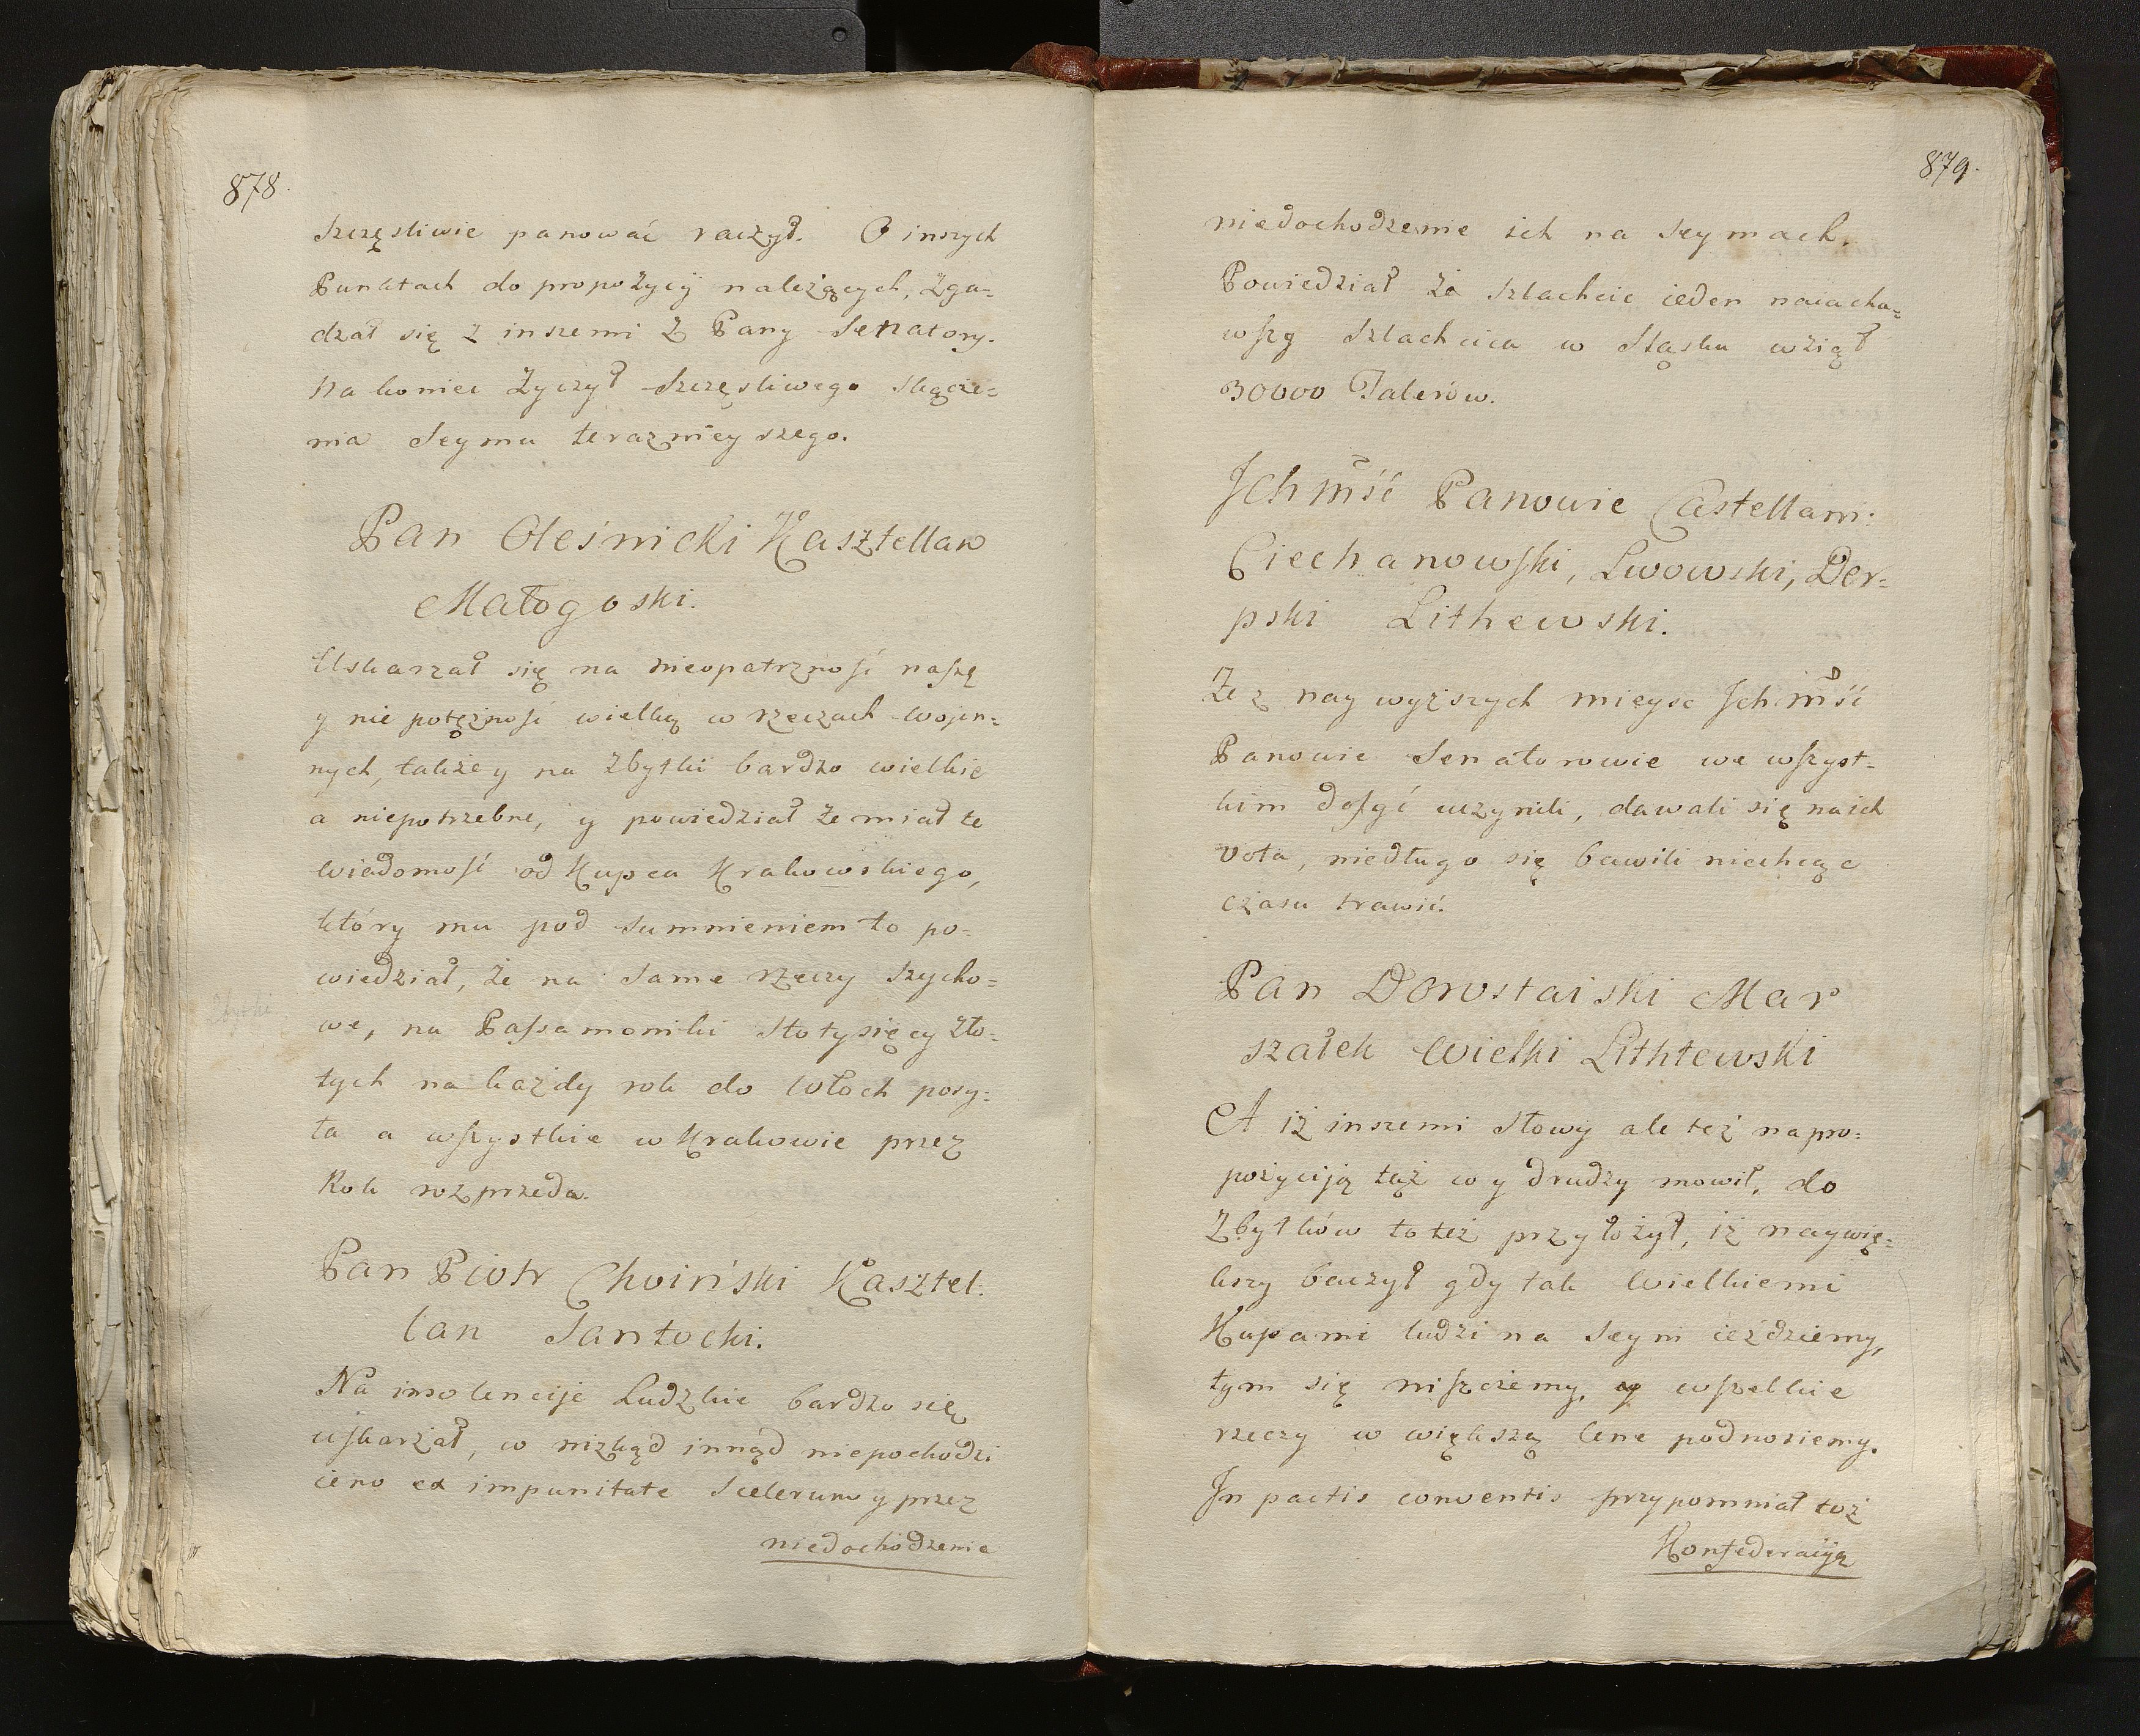 878.
Szczęsliwie panować raczył. O inszych
Punktach do propozycÿ należących, zga-
dzał się z inszemi z Pany Senatory.
Na koniec życzył Szczęsliwego skącze-
nia Seymu teraznieyszego.
Pan Oleśnicki Kasztellan
Małogoski.
Uskarzał się na nieopatrzność naszę
y nie potężność wielką w rzeczach wojen-
nych, także y na zbytki bardzo wielkie
a niepotrzebne, y powiedział że miał te
wiadomość od Kupca Krakowskiego,
który mu pod sumnieniem to po-
wiedział, że na same rzeczy szycho-
we, na Passamoniki sto tysięcy zło-
tych na każdy rok do Włoch posy-
ła a wszystkie w Krakowie przez
Rok rozprzeda.
Pan Piotr Choiński Kasztel-
lan Santocki.
Na insolencije Ludzkie bardzo się
uskarżał, co nizkąd innąd niepochodzi
ieno ex impunitate Scelerum y przez
niedochodzenie
879.
niedochodzenie ich na Seymach.
Powiedział że szlachcic ieden naiacha-
wszy Szlachcica w Sląsku wziął
30000 Talerów.
Ichmść Panowie Castellani:
Ciechanowski, Lwowski, Der-
pski Lithewski.
Że z naywyższych mieysc Ichmść
Panowie Senatorowie we wszyst-
kim dosyć uczynili, dawali się na ich
vota, niedługo się bawili niechcąc
czasu trawić.
Pan Dorostaiski Mar
szałek Wielki Lithtewski
A iż inszemi słowy ale też na pro-
pozyciją tąż co y drudzy mowił, do
Zbytków to też przyłożył, iż naywię-
kszy baczył gdy tak Wielkiemi
Kupami ludzi na Seym ieździemy,
tym się niszczemy, y wszelkie
rzeczy w większą Cene podnosiemy.
In pactis conventis przypomniał też
Konfederaciją